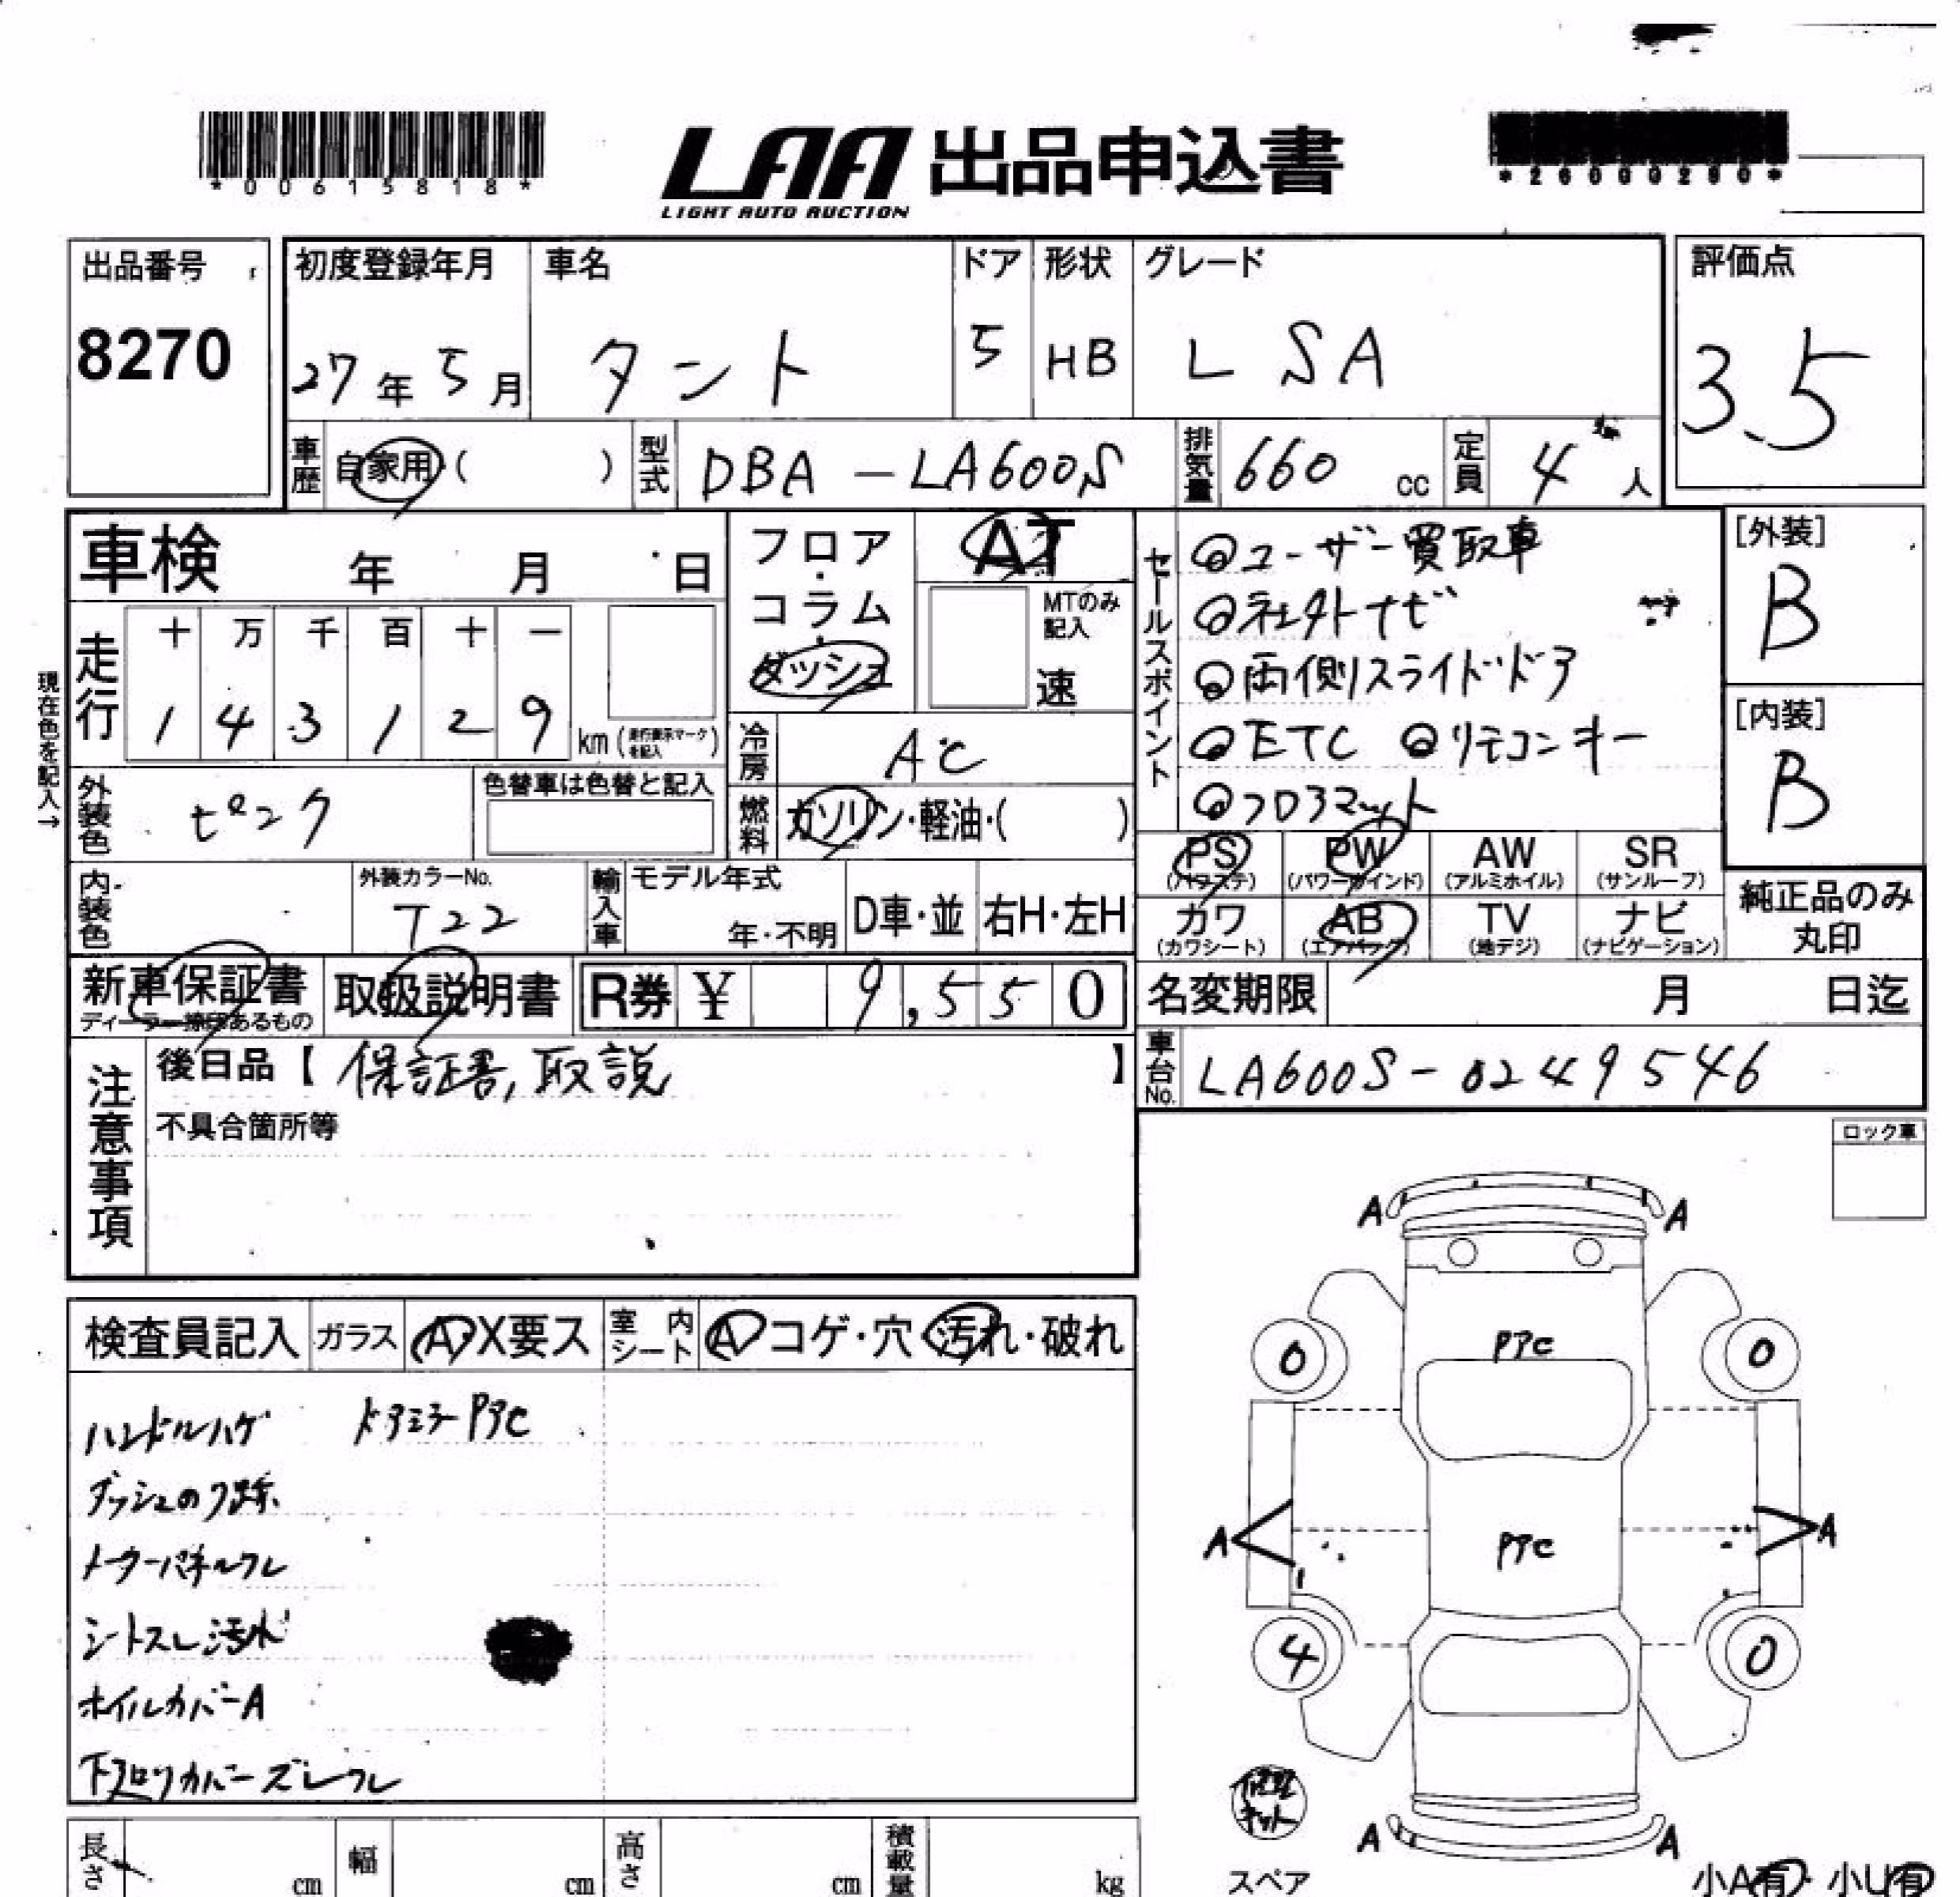 *00615818*
LAA 出品申込書
LIGHT AUTO AUCTION
*26000280*
出品番号
8270
初度登録年月
27年5月
車名
タント
ドア
5
形状
HB
グレード
L SA
評価点
3.5
車歴 自家用・( )
型式 DBA-LA600S
排気量 660 cc
定員 4人
車検 年 月 日
フロア・コラム・ダッシュ
AT
MTのみ記入
速
セールスポイント
◎ユーザー買取車
◎社外ナビ
◎両側スライドドア
◎ETC ◎リモコンキー
◎フロアマット
[外装]
B
[内装]
B
現在色を記入→
走行
十 万 千 百 十 一
1 4 3 1 2 9 km (走行表示マークを記入)
冷房 AC
外装色 ピンク
色替車は色替と記入
燃料 ガソリン・軽油・( )
内装色
外装カラーNo.
T22
輸入車
モデル年式
年・不明
D車・並
右H・左H
PS
(パワステ)
PW
(パワーウインド)
AW
(アルミホイル)
SR
(サンルーフ)
カワ
(カワシート)
AB
(エアバック)
TV
(地デジ)
ナビ
(ナビゲーション)
純正品のみ丸印
新車保証書
ディーラー捺印あるもの
取扱説明書
R券 ¥ 9,550
名変期限 月 日迄
車台No. LA600S-0249546
注意事項
後日品【 保証書,取説 】
不具合箇所等
ロック車
検査員記入
ガラス A・X要ス
室内シート A コゲ・穴・汚れ・破れ
ハンドルハゲ ドアミラーPアC
ダッシュのリ跡
メーターパネルワレ
シートスレ汚れ
ホイルカバーA
下フロントカバーズレワレ
A A
PアC
0 0
A A
PアC
4 0
A A
キット
スペア
小A有・小U有
長さ cm
幅 cm
高さ cm
積載量 kg